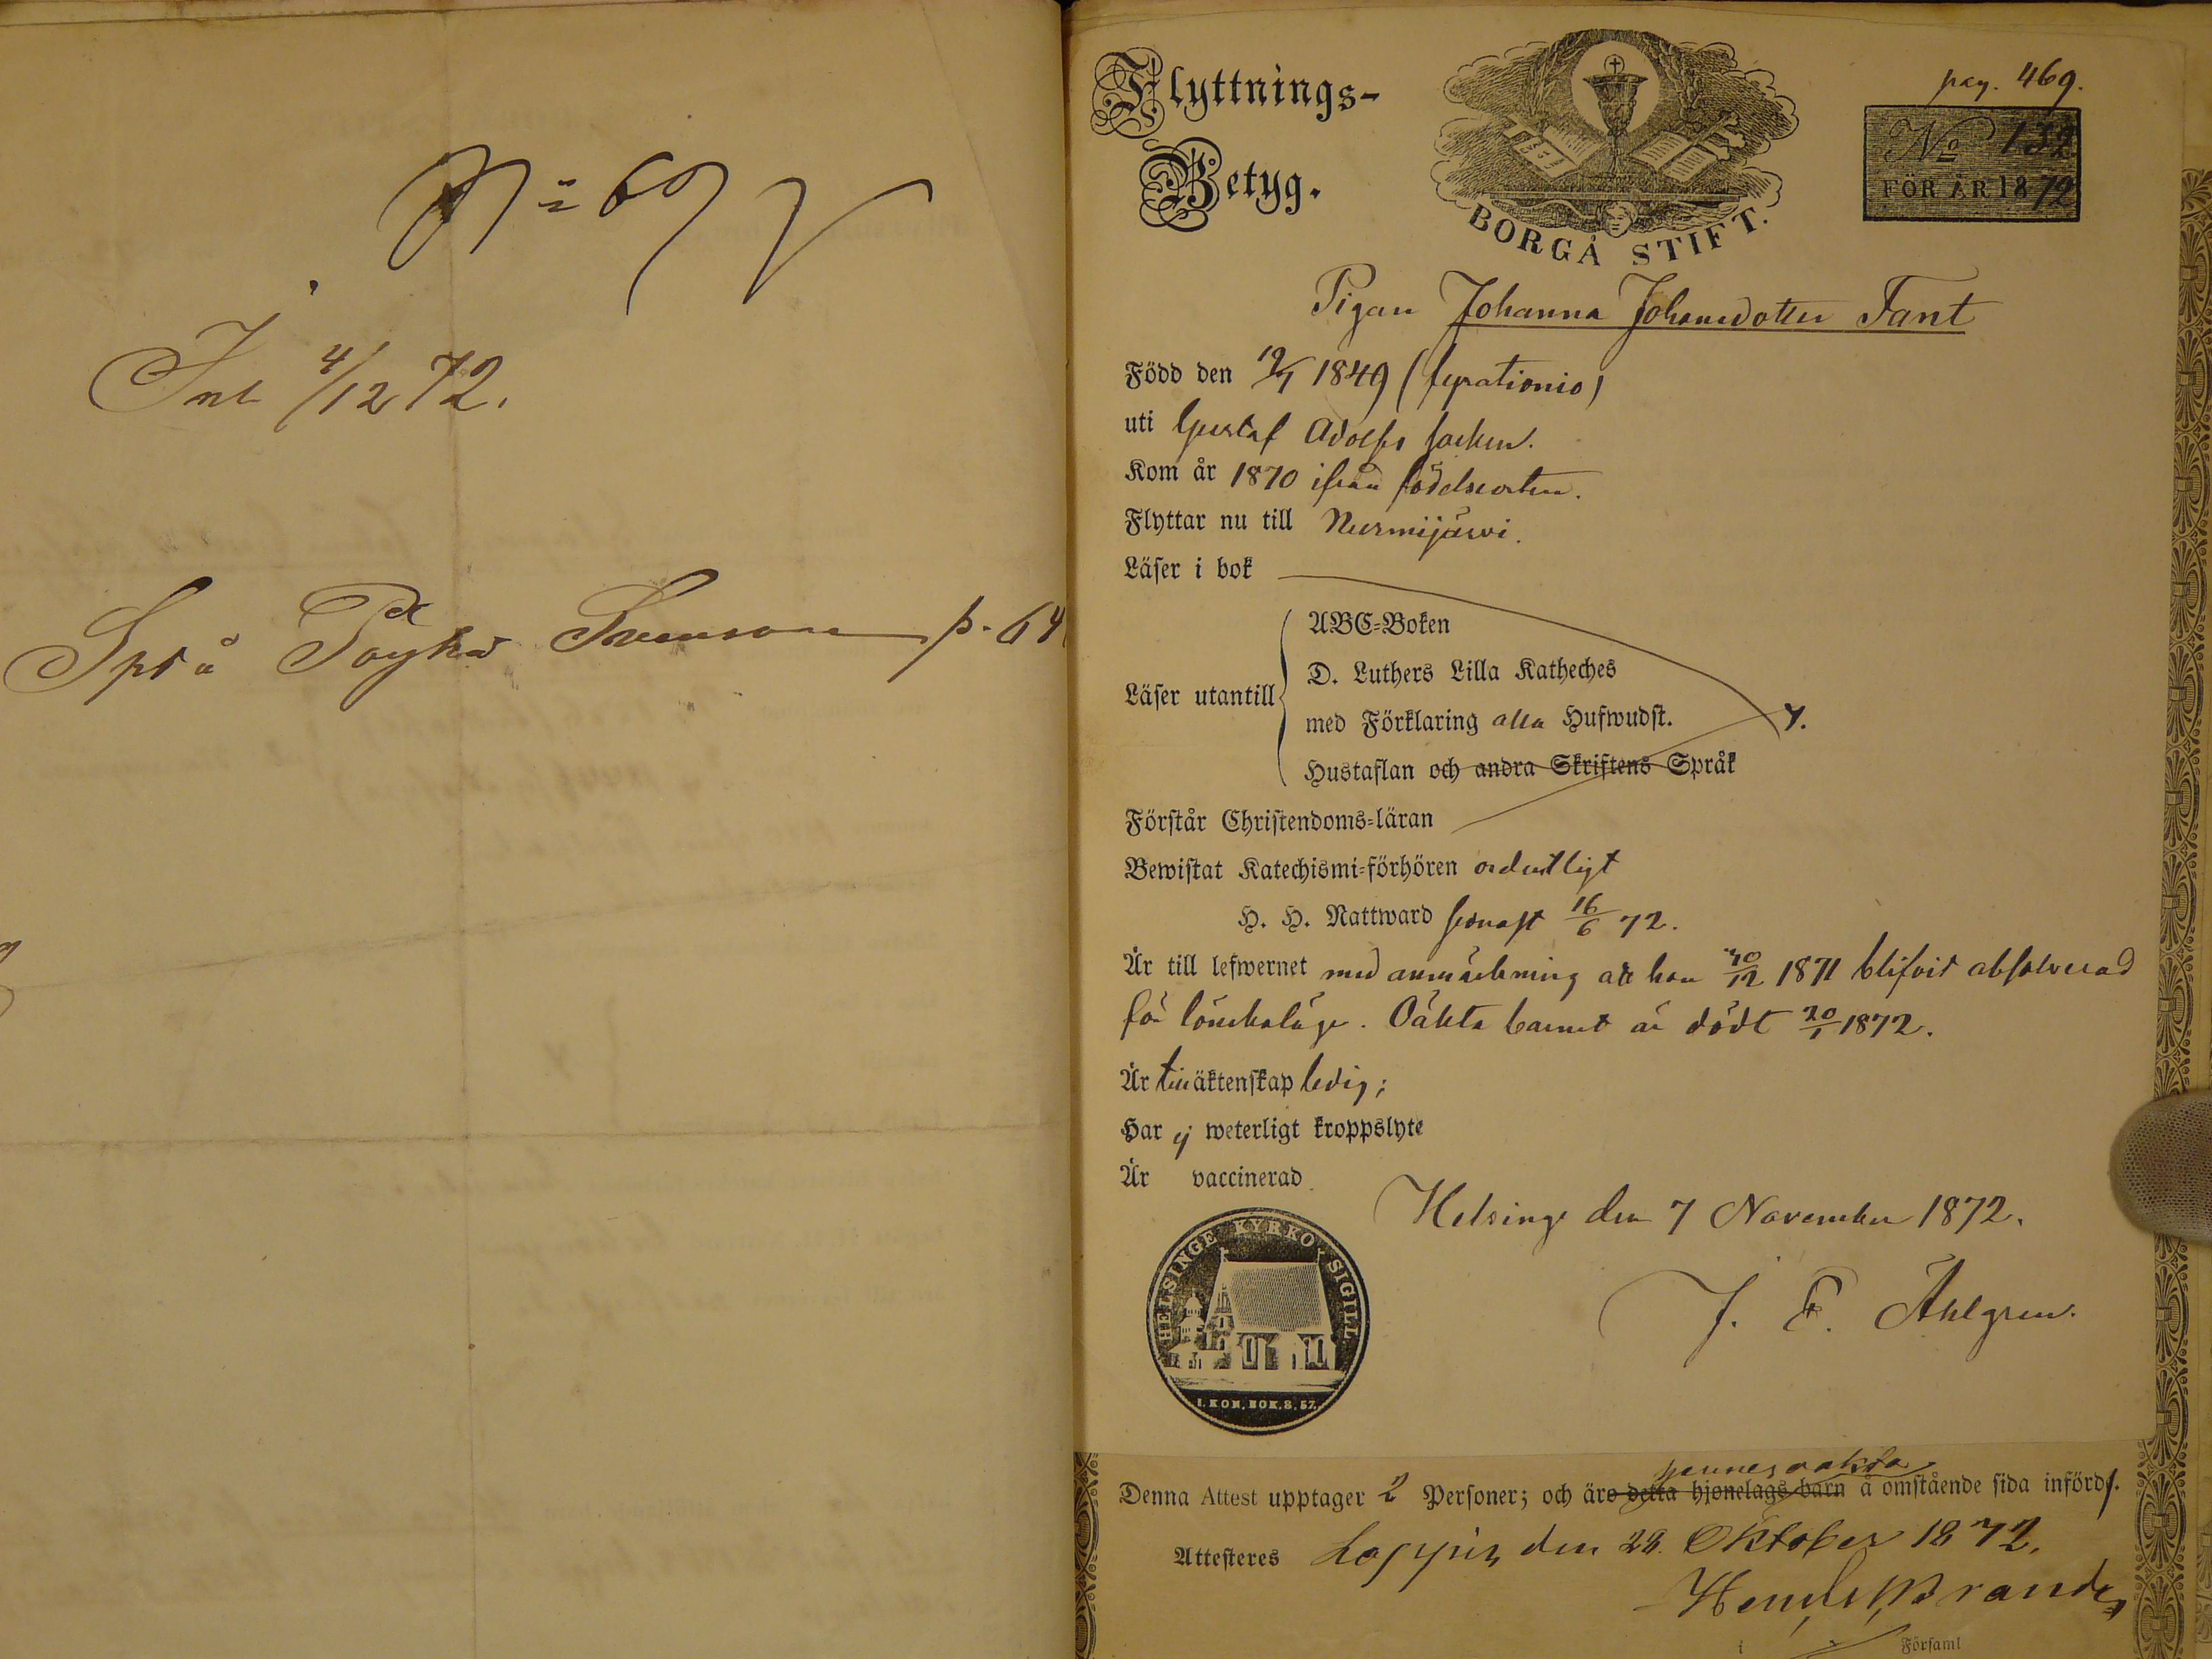 N:o 69
Inl 4/12 72.
Spr å Svenson p. 64
Flyttnings-
Betyg.
BORGÅ STIFT.
pag. 469.
No 132
FÖR ÅR 1872
Pigan Johanna Johansdotter Fant
Född den 19/7 1849 (fyrationio)
uti Gustaf Adolfs socken.
Kom år 1870 ifrån födelseorten.
Flyttar nu till Nurmijärvi.
Läser i bok
Läser utantill
ABC-Boken
D. Luthers Lilla Katheches
med Förklaring alla Hufwudst.
Hustaflan och andra Skriftens Språk
Förstår Christendoms-läran
Bewistat Katechismi-förhören ordentligt
H. H. Nattward senast 16/6 72.
Är till lefwernet med anmärkning att hon 10/12 1871 blifvit absolverad
för lönskaläge. Oäkta barnet är dödt 20/1 1872.
Är till äktenskap ledig;
Har ej weterligt kroppslyte
Är vaccinerad
Helsinge den 7 November 1872.
J. E. Ahlgren.
HELSINGE KYRKO SIGILL
I. KON. BOK. 8. 57.
hennes oäkta
Denna Attest upptager 2 Personer; och äro detta hjonelags barn å omstående sida införd.
Attesteres Loppis, den 28. Oktober 1872.
i Församl